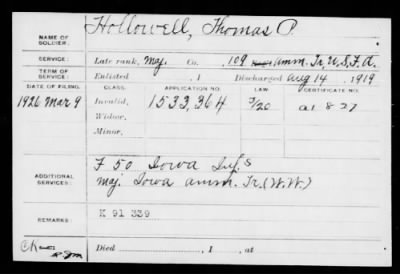 Hollowell, Thomas P.
NAME OF SOLDIER:
SERVICE: Late rank, Maj. Co. , 109 Amm. Tr, U.S.F.A.
TERM OF SERVICE: Enlisted , 1 Discharged Aug 14 , 1919
DATE OF FILING. CLASS. APPLICATION NO. LAW CERTIFICATE NO.
1926 Mar 9 Invalid, 1533,364 3/20 a1 8 27
Widow,
Minor,
ADDITIONAL SERVICES:
F 50 Iowa Inf.
Maj. Iowa Amm. Tr. (W.W.)
REMARKS: K 91 339
Died , 1 , at